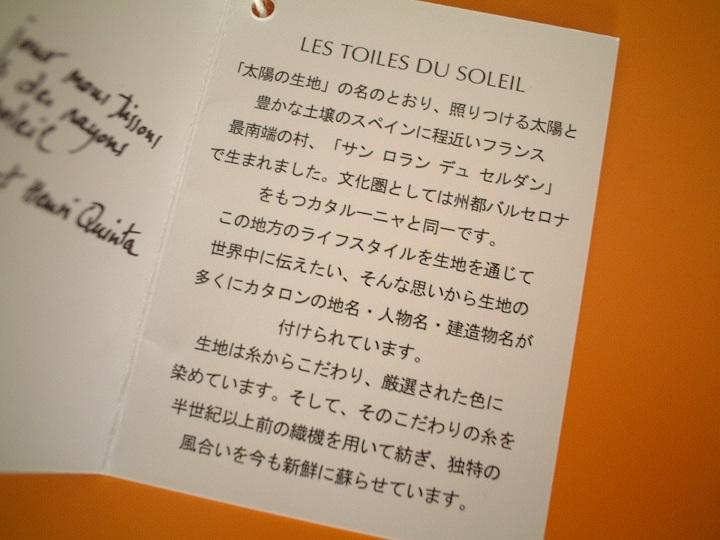 pour nous tissons
des rayons
soleil
Henri Quinta
LES TOILES DU SOLEIL
「太陽の生地」の名のとおり、照りつける太陽と
豊かな土壌のスペインに程近いフランス
最南端の村、「サン ロラン デュ セルダン」
で生まれました。文化圏としては州都バルセロナ
をもつカタルーニャと同一です。
この地方のライフスタイルを生地を通じて
世界中に伝えたい、そんな思いから生地の
多くにカタロンの地名・人物名・建造物名が
付けられています。
生地は糸からこだわり、厳選された色に
染めています。そして、そのこだわりの糸を
半世紀以上前の織機を用いて紡ぎ、独特の
風合いを今も新鮮に蘇らせています。